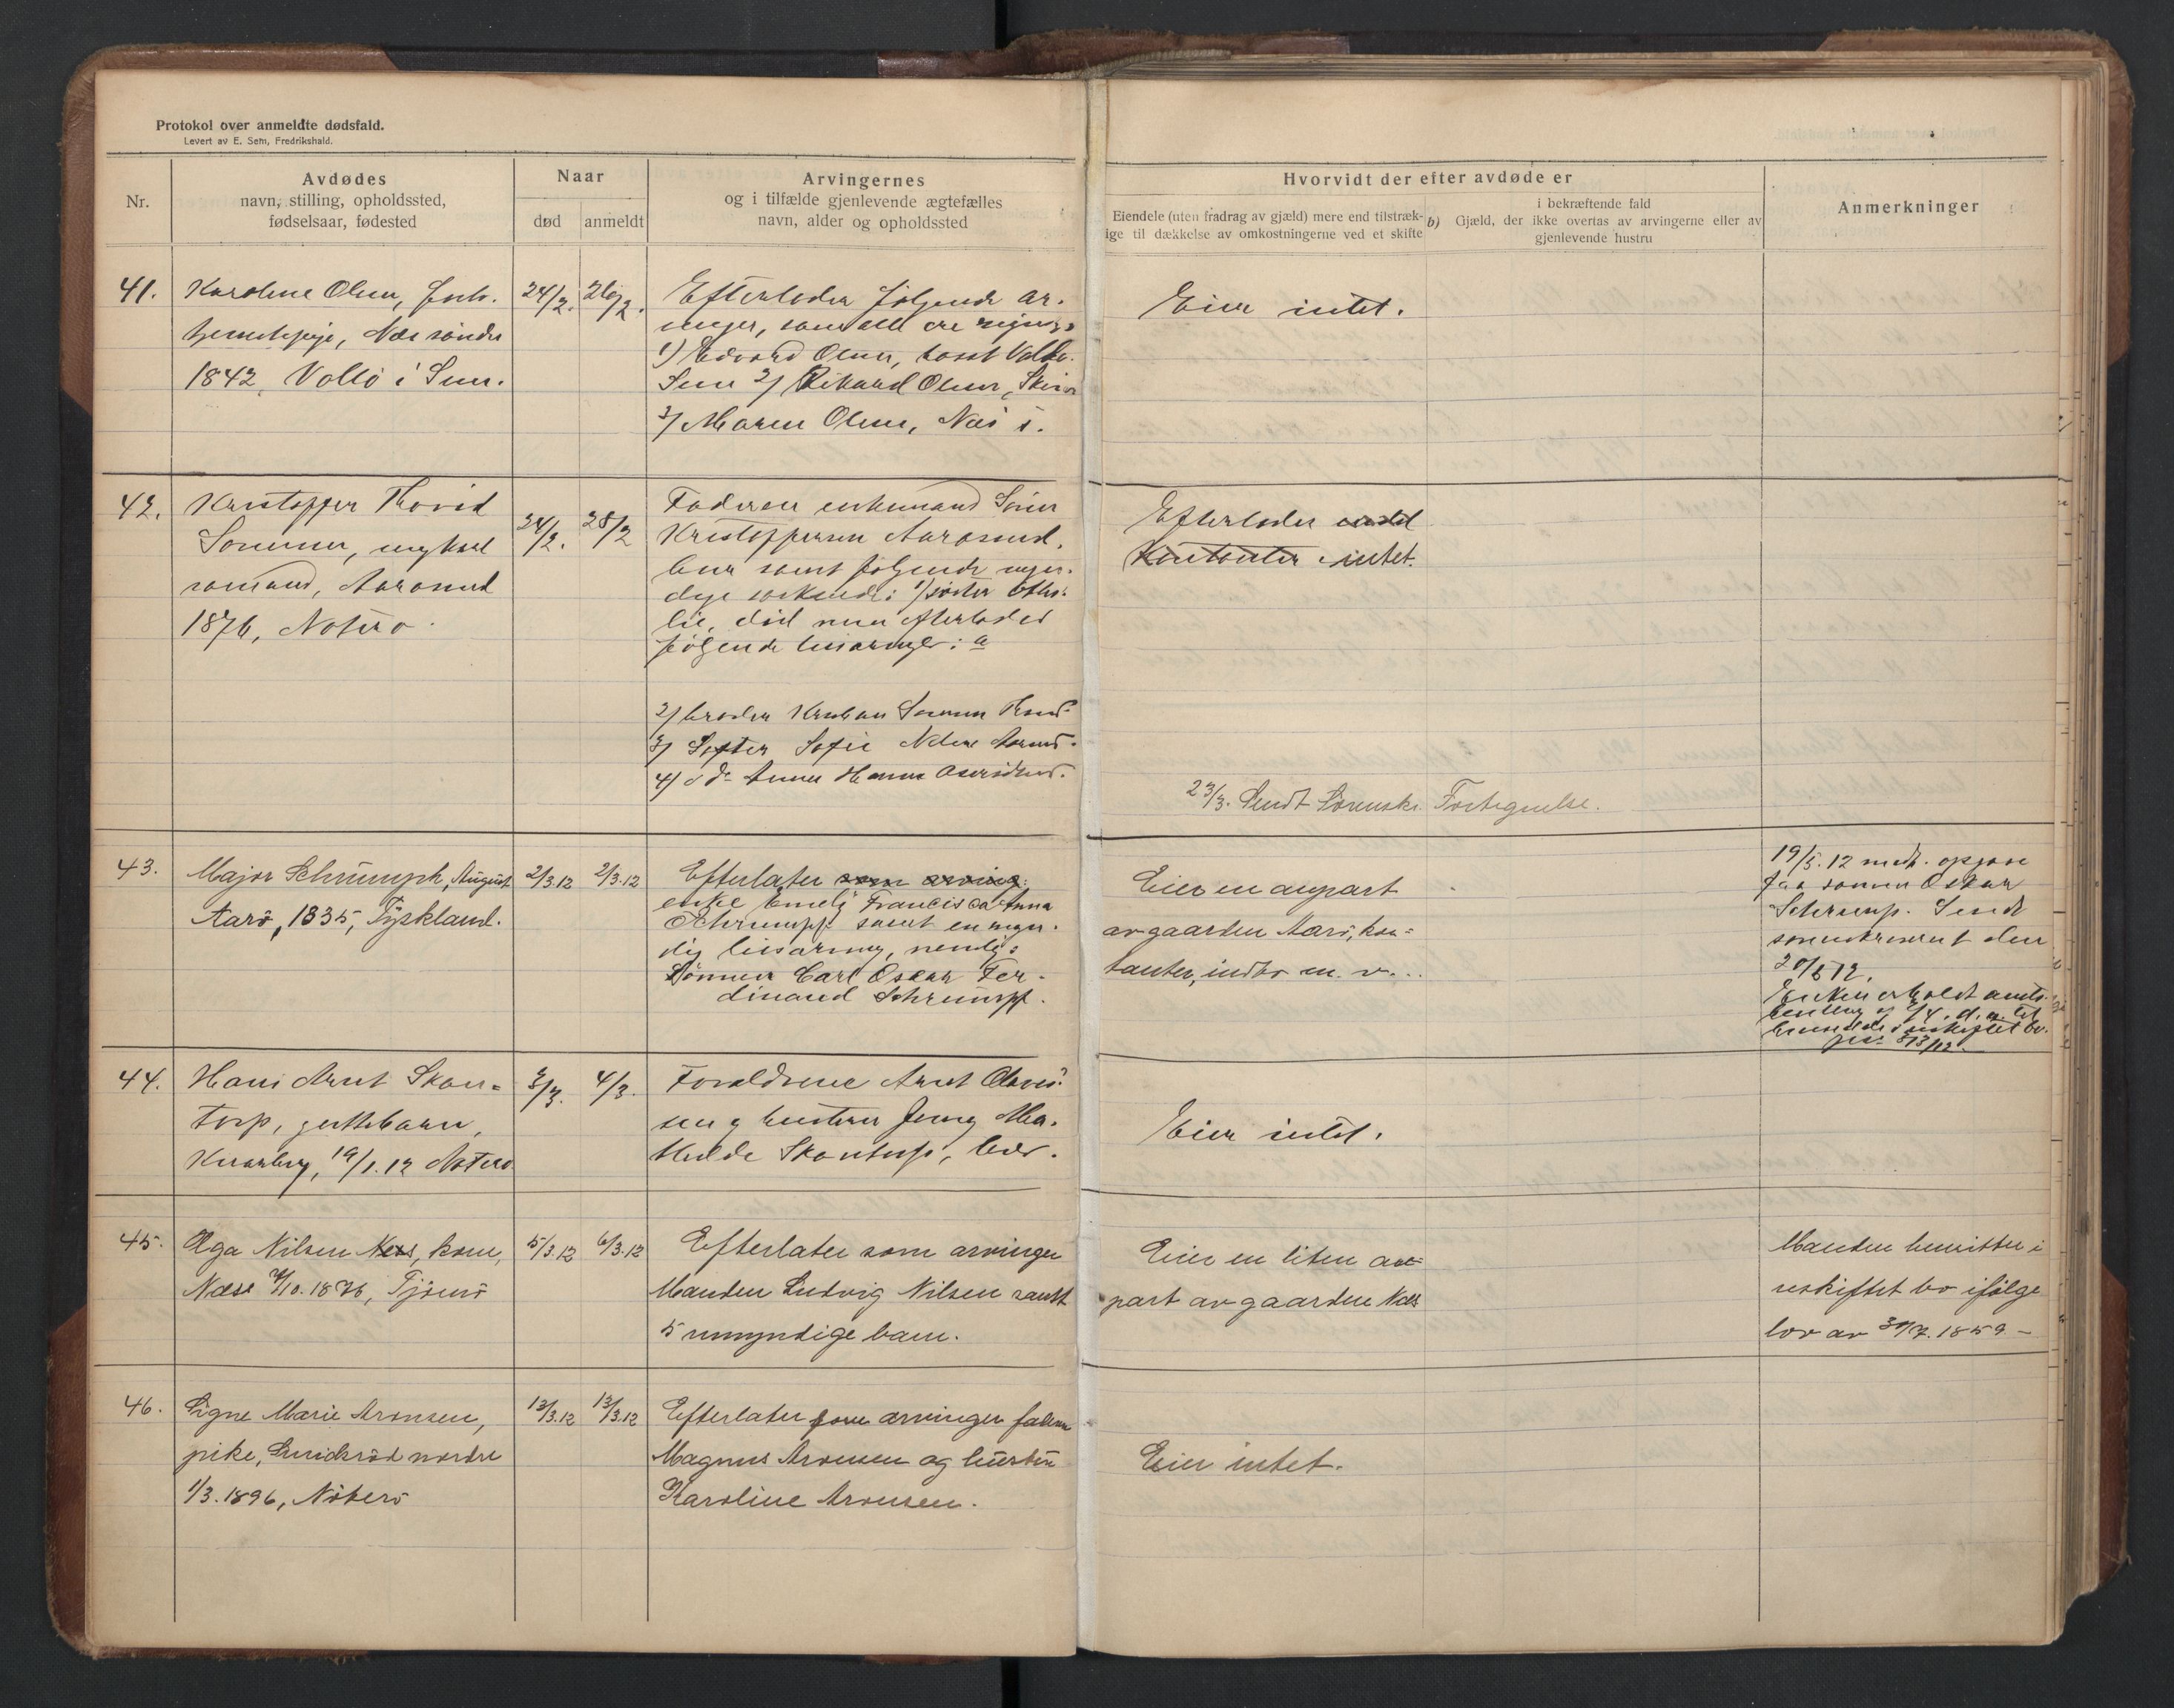 Protokol over anmeldte dødsfald.
Levert av E. Sem, Fredrikshald.
Nr.
Avdødes
navn, stilling, opholdssted,
fødselsaar, fødested
Naar
død
anmeldt
Arvingernes
og i tilfælde gjenlevende ægtefælles
navn, alder og opholdssted
Hvorvidt der efter avdøde er
Eiendele (uten fradrag av gjæld) mere end tilstræk-
ige til dækkelse av omkostningerne ved et skifte
b)
i bekræftende fald
Gjæld, der ikke overtas av arvingerne eller av
gjenlevende hustru
Anmerkninger
41.
Karoline Olsen, forh.
Næs søndre
1842, Vallö i Sem.
24/2.
26/2.
Efterlader følgende ar-
som alle ere
1) Edvard Olsen, Vallö.
Sem 2) Rikard Olsen,
3) Maren Olsen, Næs s.
Eier intet.
42.
Kristoffer Thorvid
Sörensen, ungkarl
sömand, Aarøsund
1876, Nøterö.
24/2.
28/2
Faderen enkemand Sören
Kristoffersen Aarøsund,
lever samt følgende myn-
dige söskende: 1) søster Othi-
lie, död men efterlader
følgende livsarvinger: a
2) broder Kristian Sörensen
3) Søster Sofie
4) do Anna
Efterlader endel
Kontanter intet.
23/3. Sendt Sorenskr. Fortegnelse.
43.
Major Schrumph, August
Aarö, 1835, Tyskland.
2/3.12
2/3.12
Efterlater som arving:
enke Emely Francisca Anna
Schrumpf samt en myn-
dig livsarving, nemlig:
Sönnen Carl Oskar Fer-
dinand Schrumpf.
Eier en anpart
av gaarden Aarö, kon=
tanter, indbo m. v.
19/5.12 medt. opgave
fra sönnen Oskar
Schrumpf. Sendt
sorenskriveren den
20/5 12.
Enken erholdt amts-
bevilling 4. d. a. til
uskiftet bo.
44.
Hans Arnt Skan=
torp, guttebarn,
Knarberg, 19/1.12 Nøterö
3/3.
4/3.
Forældrene Arnt Olavs-
sen og hustru Jenny Ma-
thilde Skantorp, lever.
Eier intet.
45.
Olga Nilsen Næs, kone,
Næse /10.1876, Tjömö
5/3.12
6/3.12
Efterlater som arvinger
Manden Ludvig Nilsen samt
5 umyndige barn.
Eier en liten an=
part av gaarden Næs
Manden hensitter i
uskiftet bo ifölge
lov av 30/7. 1859 -
46.
Signe Marie Aronsen,
pike, Smidsröd nordre
1/3.1896, Nöterö
13/3.12
13/3.12
Efterlater som arvinger faderen
Magnus Aronsen og hustru
Karoline Aronsen.
Eier intet.